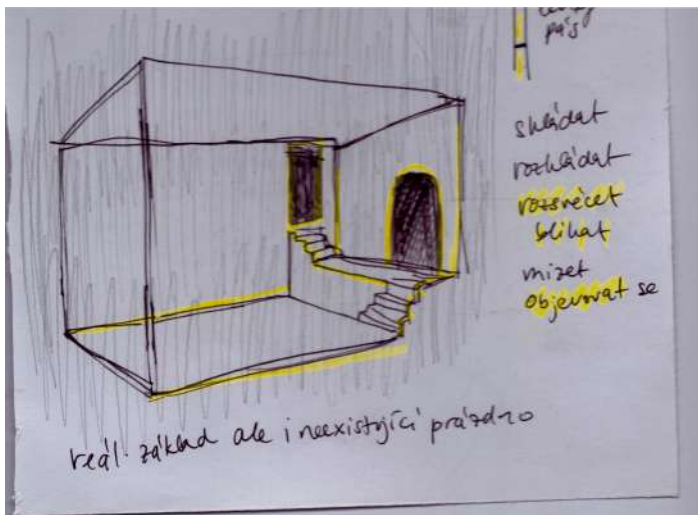 pás
skládat
rozkládat
rozsvěcet
blikat
mizet
objevovat se
reál. základ ale i neexistující prázdno